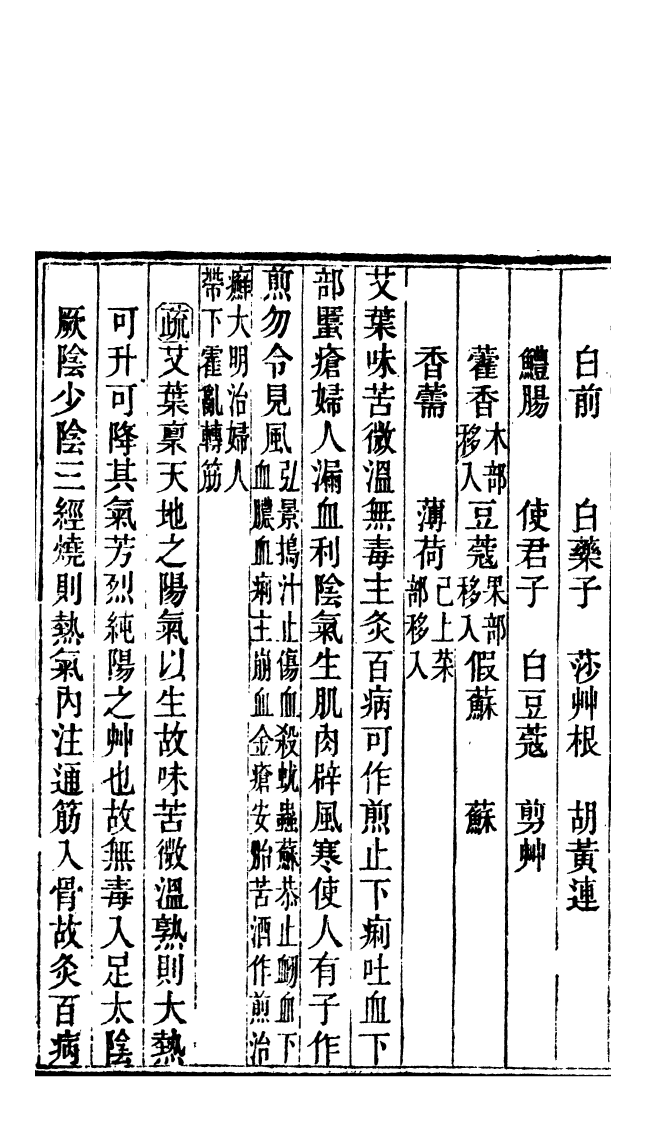 白前　白藥子　莎艸根　胡黃連
鱧腸　使君子　白豆蔻　剪艸
藿香木部移入　豆蔻果部移入　假蘇　蘇
香薷　薄荷己上菜部移入
艾葉味苦微溫無毒主灸百病可作煎止下痢吐血下
部䘌瘡婦人漏血利陰氣生肌肉辟風寒使人有子作
煎勿令見風弘景搗汁止傷血殺蚘蟲蘇恭止衂血下血膿血痢主崩血金瘡安胎苦酒作煎治
癬大明治婦人帶下霍亂轉筋
疏艾葉稟天地之陽氣以生故味苦微溫熟則大熱
可升可降其氣芳烈純陽之艸也故無毒入足太陰
厥陰少陰三經燒則熱氣內注通筋入骨故灸百病